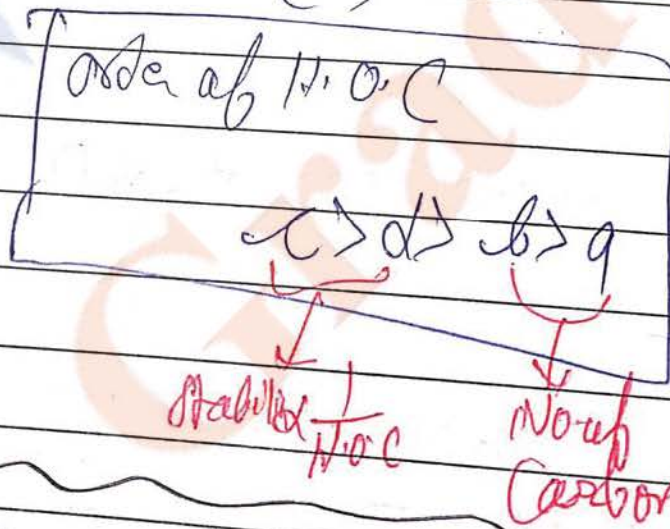 Order of H.O.C
c > d > b > a
Stability ∝ 1/H.O.C
No. of
Carbon
Grad